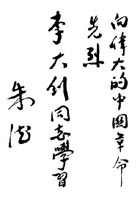 向伟大的中国革命
先烈
李大钊同志學習
朱德